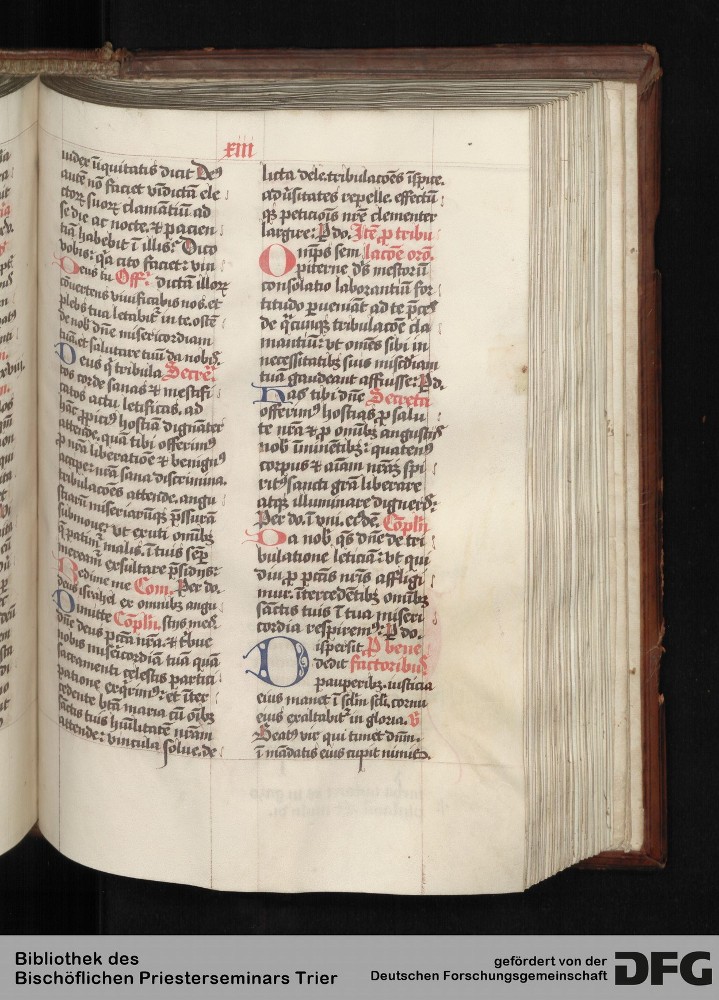 xiii
iudex iniquitatis dicit De9
aute nō faciet vīdictā ele
ctoꝝ suoꝝ clamātiū ad
se die ac nocte. ⁊ pacien
tiā habebit ī illis: Dico
vobis: qa cito faciet: vin
Deus tu Off: dictā illoꝝ
cōuertens viuificabis nos. et
plebs tua letabit͛ in te. ostē
de nob̄ dn̄e misericordiam
tuā. et salutare tuū da nobis.
Deus q̄ tribula Secre:
tos corde sanas ⁊ mestifi
catos actu letificas. ad
hāc ꝓpici9 hostiā dignāter
attende. quā tibi offerim9
ꝓ nr̄a liberatiōe ⁊ benign9
accipe nr̄am sana discrimina.
tribulacōes attende. angu
stiarū miseriarūqꝫ p̄ssurā
submoue: vt exuti omībꝫ
q̄ patim͛ malis. ī tuis sēp̄
meream͛ exsultare p̄sidijs:
Redime me Com. Per do.
deus israhel ex omnibꝫ angu
Dimitte Cōplīi. stijs meis
dn̄e deus pctā nr̄a. ⁊ t͛bue
nobis misericordiā tuā quā
sacramenti celestis partici
patione exq̄rim9: et īter
cedente bt̄a maria cū oībꝫ
sāctis tuis hūilitatē nr̄am
attende: vincula solue. de
licta dele. tribulacōes īspice.
aduſitates repelle. effectū
qꝫ peticiōis nr̄e clementer
largire: P do. Itē ꝓ tribu
Omīps sem lacōe orō.
piterne ds̄ mestorū
consolatio laborantiū for
titudo ꝑueniāt ad te p̄ces
de q̄cūqꝫ tribulacōe cla
mantiū: vt om̄es sibi in
necessitatibꝫ suis misc̄diam
tuā gaudeant affuisse: P do.
Has tibi dn̄e Secreta
offerim9 hostias ꝓ salu
te nr̄a ⁊ ꝓ omībꝫ angustijs
nob̄ īminētibꝫ: quaten9
corpus ⁊ aīam nr̄am spi
rit9 sancti gr̄a liberare
atqꝫ illuminare digneris:
Per do. ī vni. eiusdē. Cōplīi
Da nob̄. qs̄ dn̄e de tri
bulatione leticiā: vt qui
diu ꝓ pctīs nr̄is affligi
mur. ītercedētibꝫ omībꝫ
sāctis tuis ī tua miseri
cordia respirem9: P do.
Dispersit. P bene
dedit factoribus
pauperibꝫ. iusticia
eius manet ī sclm̄ scli. cornu
eius exaltabit͛ in gloria. v
Beat9 vir qui timet dn̄m.
ī mādatis eius cupit nimis.
Bibliothek des
Bischöflichen Priesterseminars Trier
gefördert von der
Deutschen Forschungsgemeinschaft
DFG